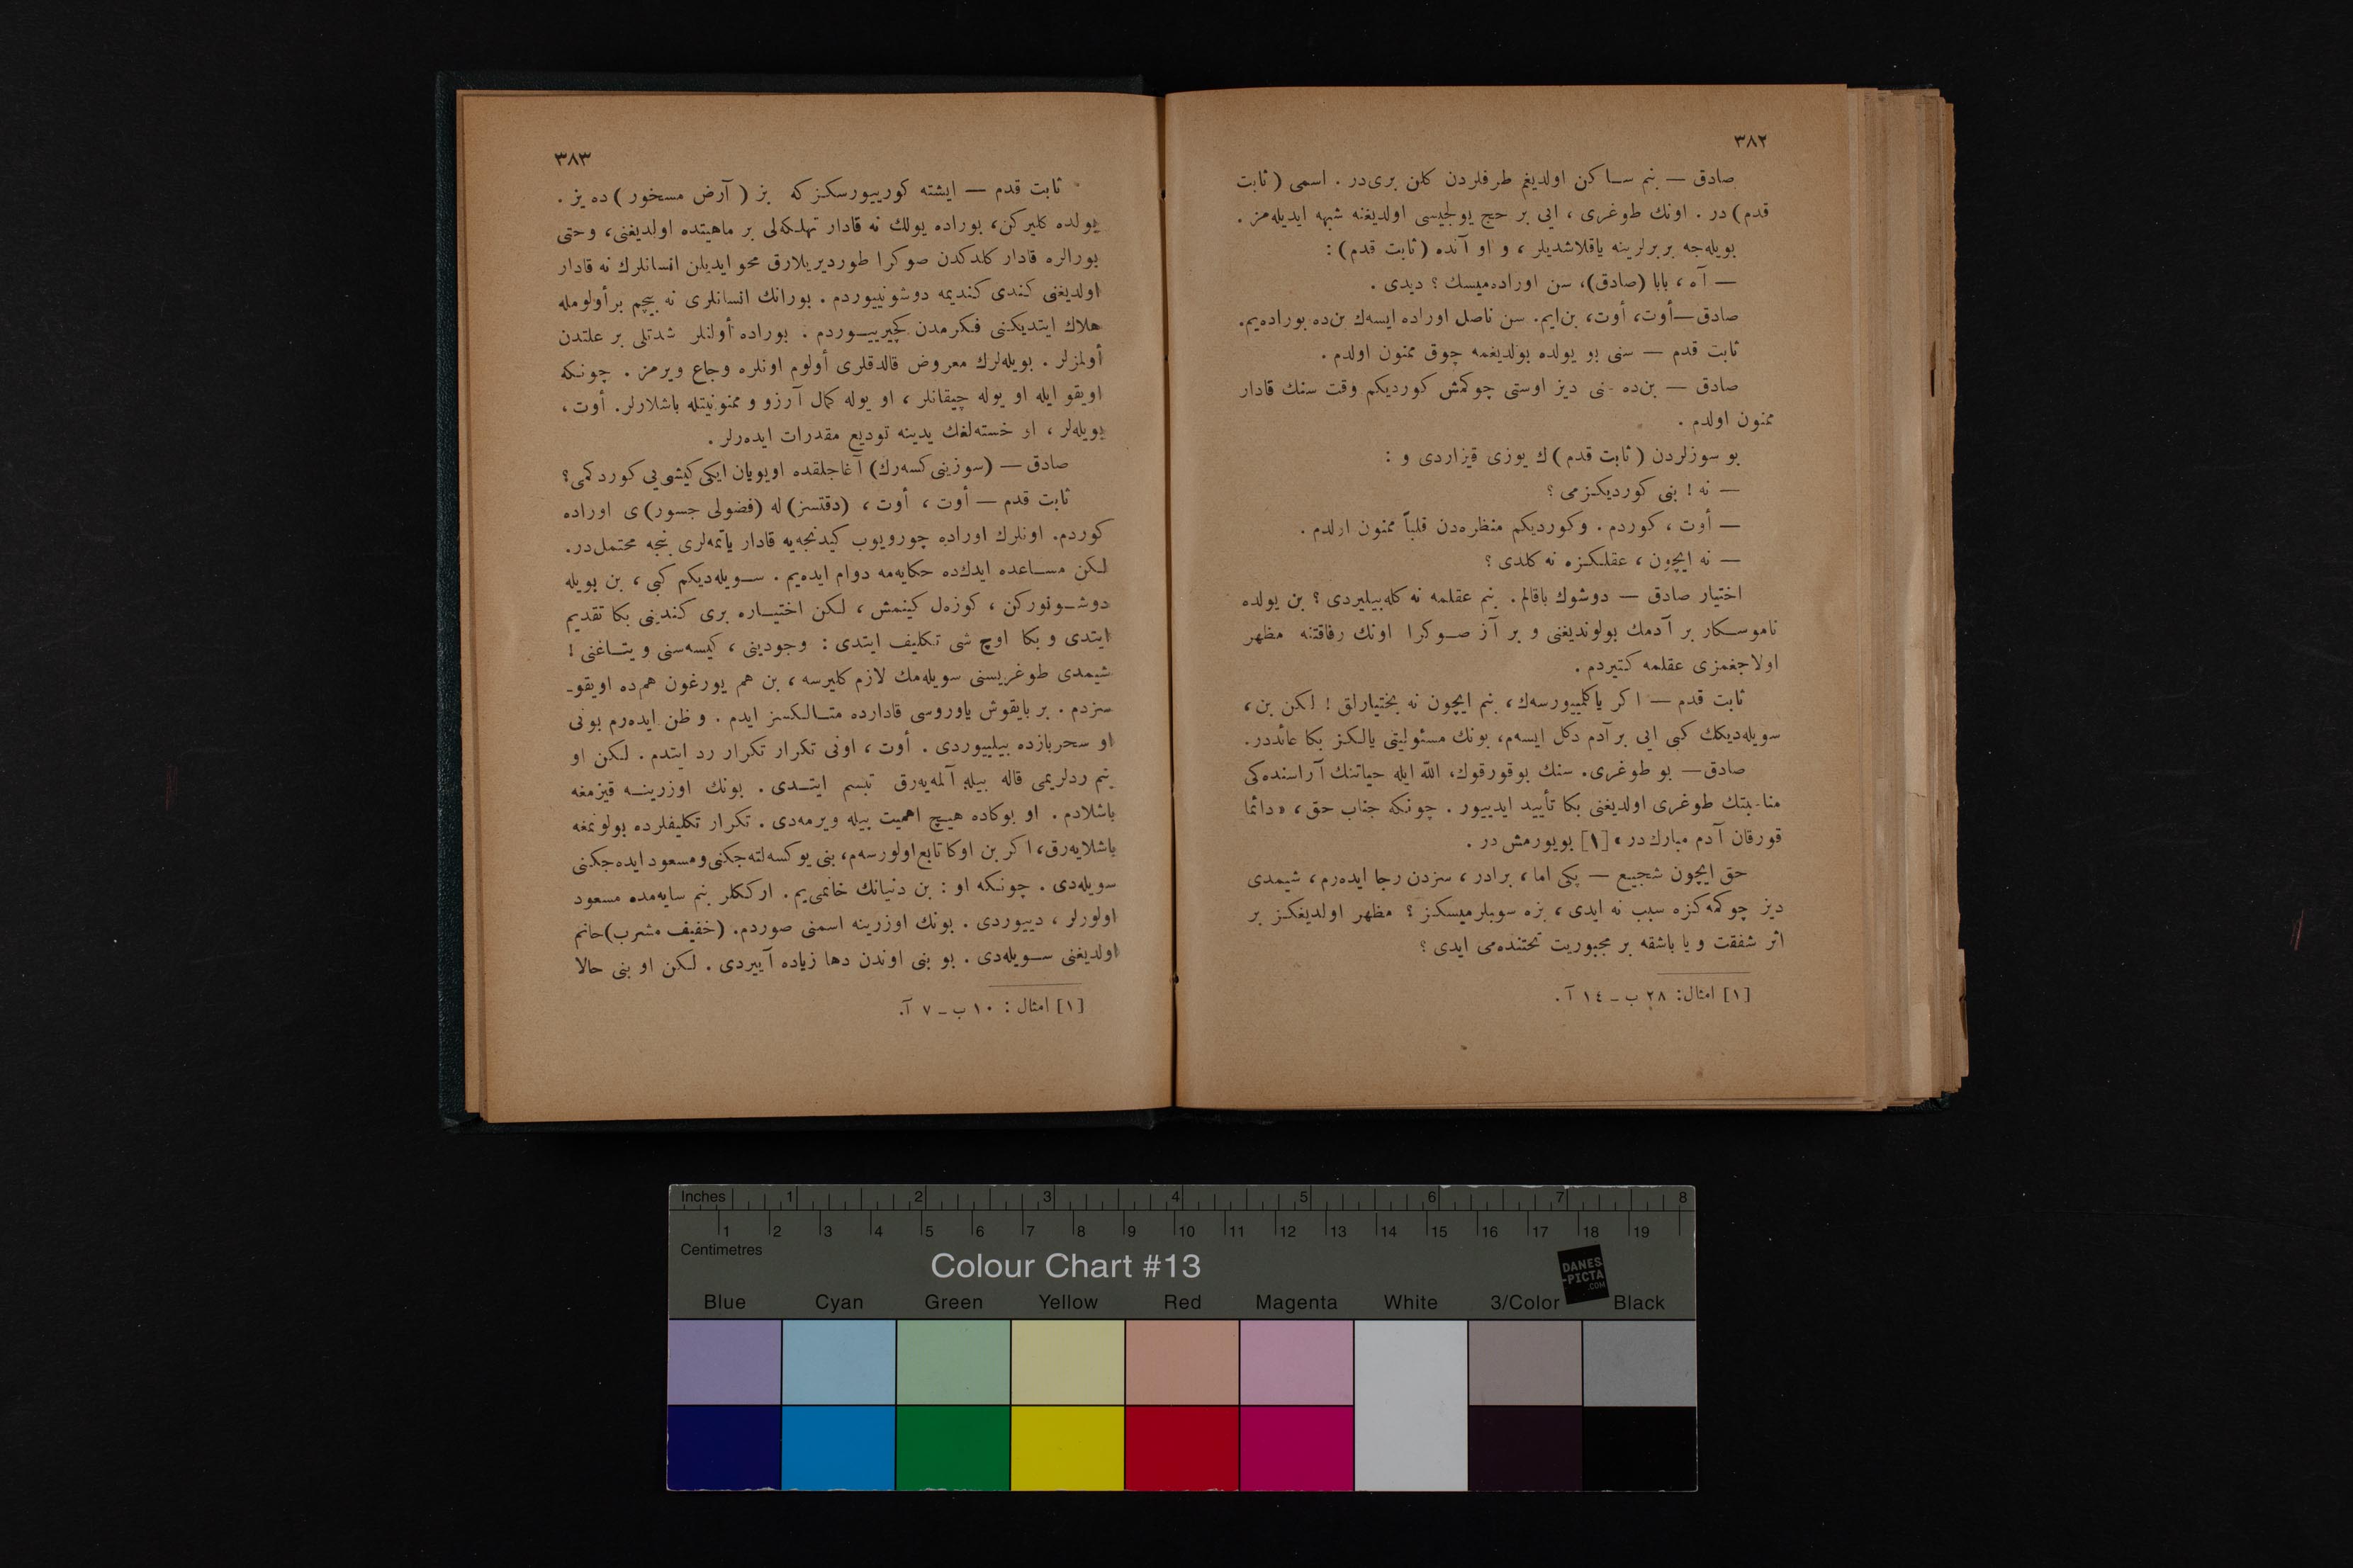 ٣٨٢
صادق — بنم ساكن اولديغم طرفلردن كلن برى‌در . اسمى ( ثابت
قدم ) در . اونك طوغرى ، ايى بر حج يولجيسى اولديغنه شبهه ايديله‌مز .
بويله‌جه بربرلرينه ياقلاشديلر ، و او آنده ( ثابت قدم ) :
— آه ، بابا (صادق)، سن اوراده‌ميسك ؟ ديدى .
صادق — أوت، أوت، بن‌ايم. سن ناصل اوراده ايسه‌ك بن‌ده بوراده‌يم.
ثابت قدم — سنى بو يولده بولديغمه چوق ممنون اولدم .
صادق — بن‌ده نى ديز اوستى چوكمش كورديكم وقت سنك قادار
ممنون اولدم .
بو سوزلردن ( ثابت قدم ) ك يوزى قيزاردى و :
— نه ! بنى كورديكز‌مى ؟
— أوت ، كوردم . وكورديكم منظره‌دن قلباً ممنون اولدم .
— نه ايچون ، عقلكزه نه كلدى ؟
اختيار صادق — دوشوك باقالم . بنم عقلمه نه كله‌بيليردى ؟ بن يولده
ناموسكار بر آدمك بولونديغنى و بر آز صوكرا اونك رفاقتنه مظهر
اولاجغمزى عقلمه كتيردم .
ثابت قدم — اكر ياكلمييورسه‌ك ، بنم ايچون نه بختيارلق ! لكن بن ،
سويله‌ديكك كبى ايى بر آدم دكل ايسه‌م، بونك مسئوليتى يالكز بكا عائددر.
صادق — بو طوغرى. سنك بوقورقوك، الله ايله حياتنك آراسنده‌كى
مناسبتك طوغرى اولديغنى بكا تأييد ايدييور . چونكه جناب حق ، « دائما
قورقان آدم مبارك‌در ، [١] بويورمش‌در .
حق ايچون شجيع — پكى اما ، برادر ، سزدن رجا ايده‌رم ، شيمدى
ديز چوكمه‌كزه سبب نه ايدى ، بزه سويلرميسكز ؟ مظهر اولديغكز بر
اثر شفقت و يا باشقه بر مجبوريت تحتنده‌مى ايدى ؟
[١] امثال: ٢٨ ب ـ ١٤ آ .
٣٨٣
ثابت قدم — ايشته كورييورسكز كه بز ( آرض مسخور ) ده يز .
يولده كليركن، بوراده يولك نه قادار تهلكه‌لى بر ماهيتده اولديغنى، وحتى
بورالره قادار كلدكدن صوكرا طورديريلارق محو ايديلن انسانلرك نه قادار
اولديغنى كندى كنديمه دوشونييوردم . بورانك انسانلرى نه بيچم برأولومله
هلاك ايتديكنى فكرمدن كچيرييوردم . بوراده أولنلر شدتلى بر علتدن
أولمزلر . بويله‌لرك معروض قالدقلرى أولوم اونلره وجاع ويرمز . چونكه
اويقو ايله او يوله چيقانلر ، او يوله كمال آرزو و ممنونيتله باشلارلر. أوت ،
بويله‌لر ، او خسته‌لغك يدينه توديع مقدرات ايده‌رلر .
صادق — (سوزينى كسه‌رك) آغاجلقده اويويان ايكى كيشى‌يى كوردكمى؟
ثابت قدم — أوت ، أوت ، (دقتسز) له (فضولى جسور) ى اوراده
كوردم. اونلرك اوراده چورويوب كيدنجه‌يه قادار ياتمه‌لرى بنجه محتمل‌در.
لكن مساعده ايدك‌ده حكايه‌مه دوام ايده‌يم . سويله‌ديكم كبى ، بن بويله
دوشونوركن ، كوزه‌ل كينمش ، لكن اختياره برى كندينى بكا تقديم
ايتدى و بكا اوچ شى تكليف ايتدى : وجودينى ، كيسه‌سنى و يتاغنى !
شيمدى طوغريسنى سويله‌مك لازم كليرسه ، بن هم يورغون هم‌ده اويقو‌ـ
سزدم . بر بايقوش ياوروسى قادارده متالكسز ايدم . و ظن ايده‌رم بونى
او سحربازده بيلييوردى . أوت ، اونى تكرار تكرار رد ايتدم . لكن او
بنم ردلريمى قاله بيله آلمه‌يه‌رق تبسم ايتدى . بونك اوزرينه قيزمغه
باشلادم . او بوكاده هيچ اهميت بيله ويرمه‌دى . تكرار تكليفلرده بولونمغه
باشلايه‌رق، اكر بن اوكا تابع اولورسه‌م، بنى يوكسه‌لته‌جكنى ومسعود ايده‌جكنى
سويله‌دى . چونكه او : بن دنيانك خانمى‌يم . ارككلر بنم سايه‌مده مسعود
اولورلر ، دييوردى . بونك اوزرينه اسمنى صوردم. (خفيف مشرب) خانم
اولديغنى سويله‌دى . بو بنى اوندن دها زياده آييردى . لكن او بنى حالا
[١] امثال : ١٠ ب ـ ٧ آ.
Inches 1 2 3 4 5 6 7 8
1 2 3 4 5 6 7 8 9 10 11 12 13 14 15 16 17 18 19
Centimetres
Colour Chart #13
DANES
-PICTA
.COM
Blue Cyan Green Yellow Red Magenta White 3/Color Black